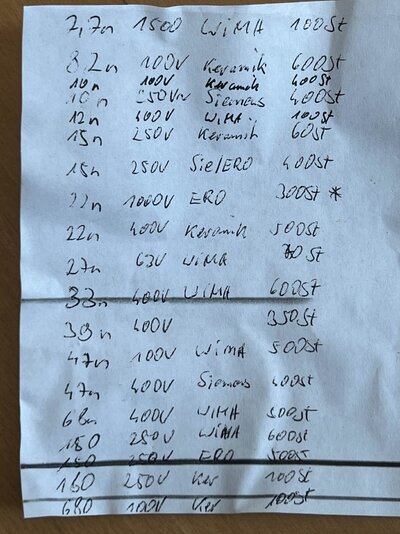 2,7n 1500 WIMA 100St
8,2n 100V Keramik 600St
10n 100V Keramik 400St
10n 250V Siemens 400St
12n 400V WIMA 100St
15n 250V Keramik 60St
15n 250V Sie/ERO 400St
22n 1000V ERO 300St *
22n 400V Keramik 500St
27n 63V WIMA St
33n 400V WIMA 600St
39n 400V 350St
47n 100V WIMA 500St
47n 400V Siemens 400St
68n 400V WIMA 300St
150 250V WIMA 600St
150 250V ERO 500St
160 250V Ker 100St
680 100V Ker 100St